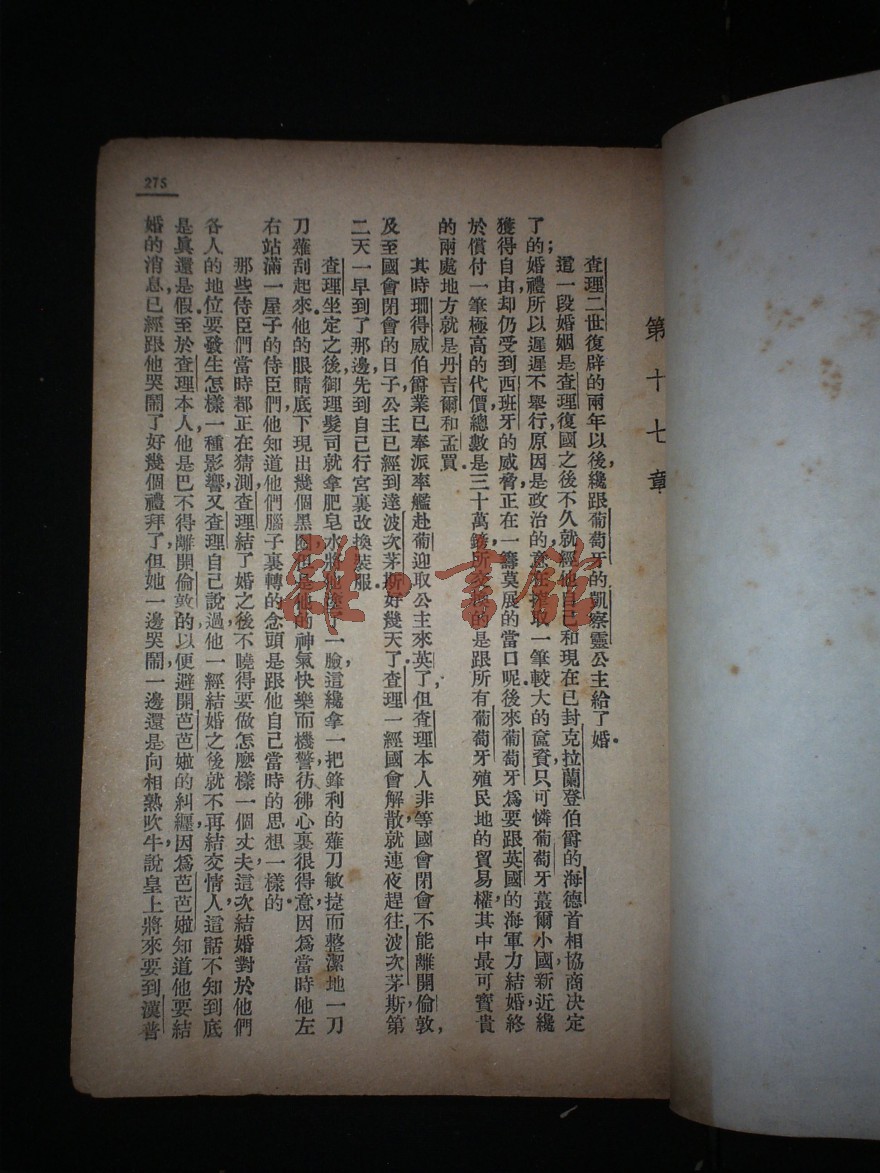 275
第十七章
查理二世復辟的兩年以後，纔跟葡萄牙的凱察靈公主給了婚。
這一段婚姻是查理復國之後不久，就經他自己和現在已封克拉蘭登伯爵的海德首相協商决定
了的；婚禮所以遲遲不舉行，原因是政治的，意在搾取一筆較大的奩資。只可憐葡萄牙蕞爾小國，新近纔
獲得自由，却仍受到西班牙的威脅，正在一籌莫展的當口呢。後來葡萄牙爲要跟英國的海軍力結婚，終
於償付一筆極高的代價，總數是三十萬鎊，所交換的是跟所有葡萄牙殖民地的貿易權，其中最可寶貴
的兩處地方就是丹吉爾和孟買。
其時珊得威伯爵業已奉派率艦赴葡迎取公主來英了，但查理本人非等國會閉會不能離開倫敦，
及至國會閉會的日子，公主已經到達波次茅斯好幾天了。查理一經國會解散，就連夜趕往波次茅斯，第
二天一早到了那邊，先到自己行宮裏改換裝服。
查理坐定之後，御理髮司就拿肥皂水將他一臉，這纔拿一把鋒利的薙刀敏捷而整潔地一刀
刀薙刮起來。他的眼睛底下現出幾個黑圈，但是他的神氣快樂而機警，彷彿心裏很得意，因爲當時他左
右站滿一屋子的侍臣們，他知道他們腦子裏轉的念頭是跟他自己當時的思想一樣的。
那些侍臣們當時都正在猜測查理結了婚之後不曉得要做怎麽樣一個丈夫，這次結婚對於他們
各人的地位要發生怎樣一種影響，又查理自己說過他一經結婚之後就不再結交情人，這話不知到底
是眞還是假。至於查理本人，他是巴不得離開倫敦的，以便避開芭芭娰的糾纏，因爲芭芭娰知道他要結
婚的消息，已經跟他哭鬧了好幾個禮拜了，但她一邊哭鬧，一邊還是向相熟吹牛，說皇上將來要到漢普
雜·書館